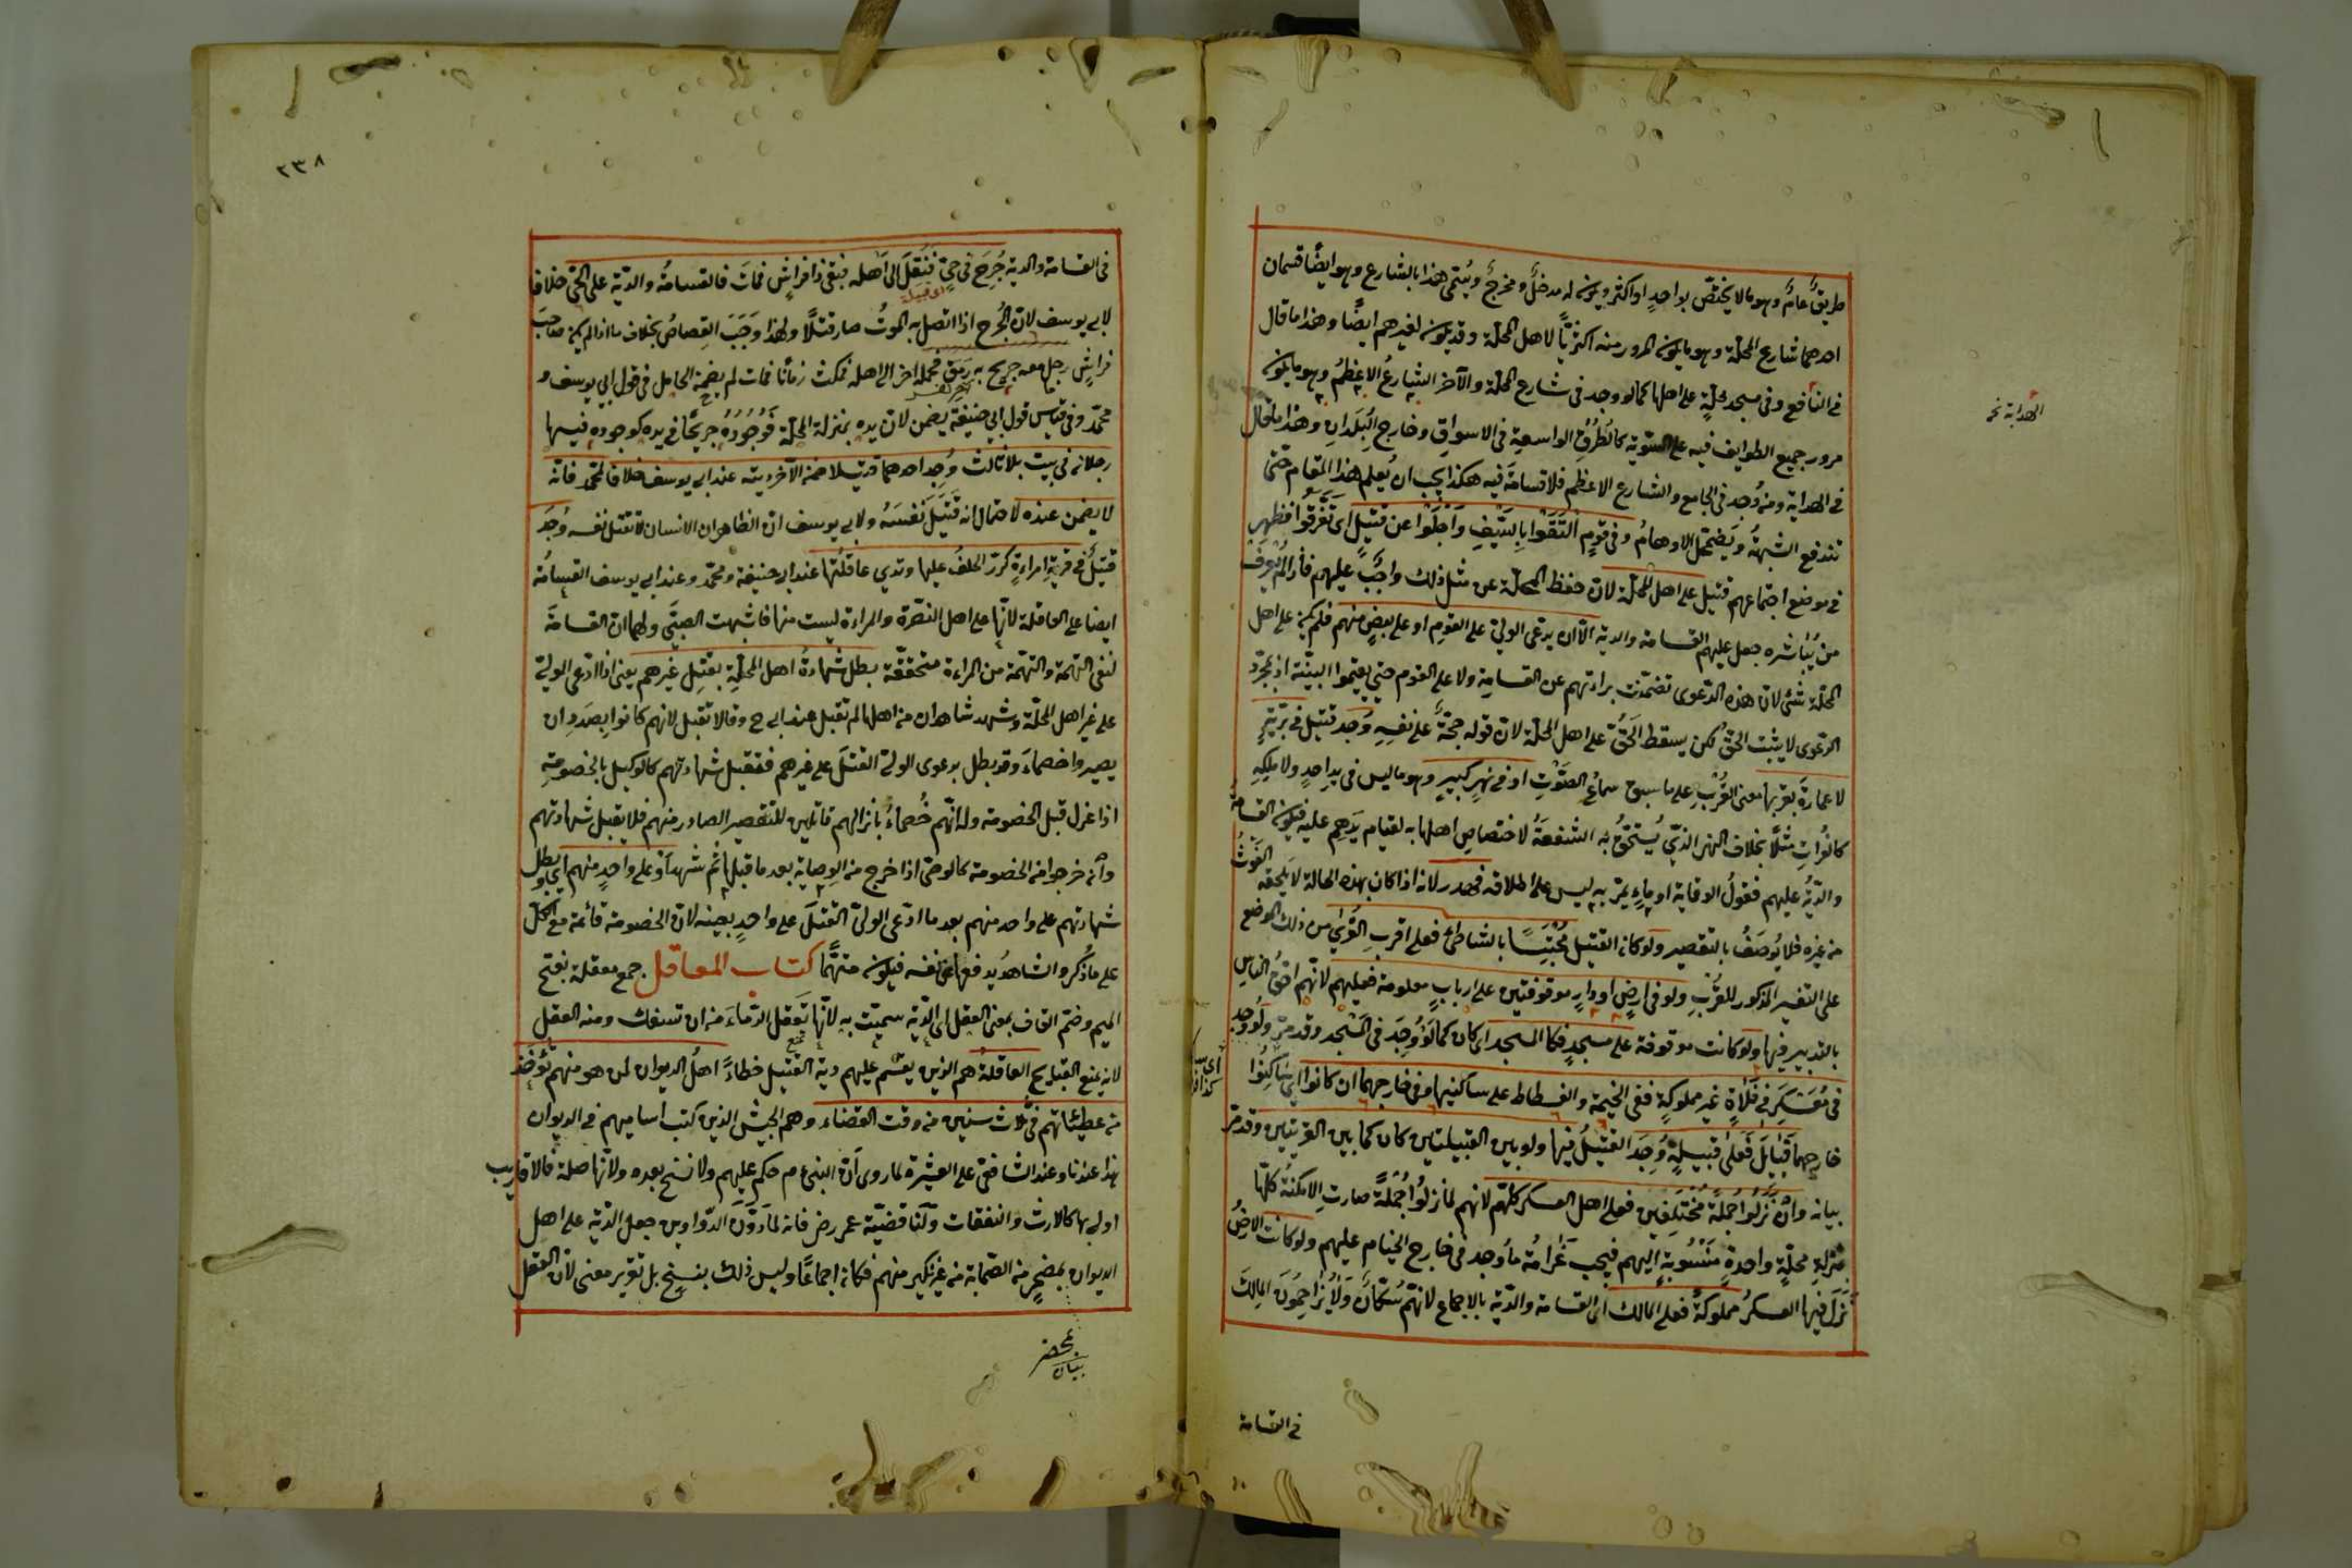 طريقٌ عامٌ وهو ما لا يختصّ بواحدٍ او اكثر ويكون له مدخلٌ ومخرجٌ ويُسمّى هذا بالشارع وهو ايضًا قسمان
احدهما شارع المحلّة وهو ما يكون المرور منه اكثريًّا لاهل المحلّة وقد يكون لغيرهم ايضًا وهذا ما قال
في النافع وفي مسجد محلّةٍ على اهلها كما لو وجد في شارع المحلّة والآخر الشارعُ الاعظمُ وهو ما يكون
مرور جميع الطوايف فيه على السّوية كالطُرُقِ الواسعة في الاسواقِ وخارج البُلدانِ وهذا ما قال
في الهداية ومن وُجد في الجامع والشارع الاعظم فلا قسامةَ فيه هكذا يجب ان يُعلم هذا المقام حتّى
تندفع الشبهةُ ويضمحلّ الاوهامُ وفي قومٍ التَقَوا بالسّيفِ وَاَجْلَوا عن قتيلٍ اى تفرّقوا فظهر
في موضع اجتماعهم قتيل على اهل المحلّة لانّ حفظ المحلّة عن مثل ذلك واجبٌ عليهم فاذا لم يُعرف
من يُباشره جعل عليهم القسامة والدية الّا ان يدّعى الوليّ على القومِ او على بعضٍ منهم فلم يكن على اهل
المحلّة شئ لانّ هذه الدّعوى تضمّنت براءتهم عن القسامةِ ولا على القوم حتى يقيموا البيّنة اذ بمجرّد
الدعوى لا يثبت الحقّ لكن يسقط الحَقُّ على اهل المحلّة لانّ قوله حجّةٌ على نفسِهِ وُجد قتيل في بَرّيّةٍ
لا عمارةَ بقربها معنى القُرْبِ على ما سبق سماعُ الصَّوْتِ او في نهرٍ كبيرٍ وهو ما ليس في يدِ احدٍ ولا ملكِهِ
كالفُراتِ مثلًا بخلاف النهر الذّي يُستحَقُّ به الشفعةُ لاختصاص اهلها به لقيام يدهم عليه فيكون القسامةُ
والدّيةُ عليهم فقولُ الوقاية او ماءٍ يمرّ به ليس على اطلاقه فهدر لانه اذا كان بهذه الحالة لا يلحقه الغَوثُ
من غيره فلا يُوصَفُ بالتقصير ولو كان القتيل مُحْتَبَسًا بالشاطئ فعلى اقربِ القُرَى من ذلك الموضع
على التفسير المذكور للقُرْبِ ولو في ارضٍ او دارٍ موقوفتين على اربابٍ معلومة فعليهم لانّهم احقُّ الناسِ
بالتدبير فيها ولو كانت موقوفة على مسجدٍ فكالمسجد اى كان كما لَوْ وُجِدَ في المسْجد وقد مرّ ولو وُجد
في مُعَسْكَرٍ في فَلاةٍ غيرِ مملوكةٍ ففي الخيمة والفسطاط على ساكنيها وفي خارجهما ان كانوا اي ساكِنُوا
خارجهما قبايلَ فَعَلى قبيلةٍ وُجِدَ القتيلُ فيها ولو بين القبيلتين كان كما بين القريتين وقد مرّ
بيانه وانْ نَزَلُوا جُملةً مُخْتَلِفين فعلى اهل العسكر كلّهم لانهم لمّا نزلُوا جُمْلَةً صارتِ الامكنةُ كلّها
بمنزلةِ محلّةٍ واحدةٍ مَنْسُوبةٍ اليهم فيجب غَرامَةُ ما وُجد في خارج الخيام عليهم ولو كانت الارضُ
نَزَلَ فيها العسكرُ مملوكةً فعلى المالك اى القسامة والدّية بالاجماع لانّهم سُكّانٌ وَلا يُزاحِمُونَ المالِكَ
الهداية نخـ
في القسامة
٢٣٨
في القسامة والدية جُرِحَ في حيٍّ فَنُقِلَ الى اَهله فبقى ذا فراشٍ فماتَ فالقسامةُ والدّية على الحيّ خلافا
اى قبيلة
لابي يوسف لانّ الجُرح اذا اتصل به الموتُ صار قتلًا ولهذا وَجَبَ القِصاصُ بخلاف ما اذا لم يكن صاحبَ
فراشٍ رجل معه جريح به رمَق فحمله اخر الى اهله فمكث زمانًا فمات لم يضمن الحامل في قول ابي يوسف و
محمّد وفي قياس قول ابي حنيفة يضمن لانّ يده بمنزلة المحلّة فوُجُودُهُ جريحًا في يده كوجوده فيها
رجلان في بيت بلا ثالث وُجِد احدهما قتيلا ضمن الآخر ديته عند ابي يوسف خلافا لمحمّد فانّه
لا يضمن عنده لاحتمال انه قَتَلَ نَفسَهُ ولابي يوسف انّ الظاهر ان الانسان لا تقتل نفسه وُجدَ
قتيلٌ في قريةِ امراءةٍ كرّرَ الحلفُ عليها وتدي عاقلتُها عند ابي حنيفة ومحمّد وعند ابي يوسف القسامةُ
ايضا على العاقلة لانّها على اهل النصْرة والمراءة ليست منها فاشبهت الصبيَّ ولهما ان القسامةَ
لنفى التهمة والتهمة من المراءة متحققة بطل شهادةُ اهل المحلّةِ بقتلِ غيرهم يعنى اذا ادّعى الوليّ
على غير اهل المحلّة وشهد شاهدان من اهلها لم تقبل عند ابي ح وقالا تقبل لانهم كانوا بصَدَدِ ان
يصيروا خصماءَ وقد بطل بدعوى الوليّ القتلَ على غيرهم فتقبل شهادتهم كالوكيل بالخصومةِ
اذا عزل قبل الخصومة وله انّهم خُصماءُ بانزالهم قاتلين للتقصير الصادر منهم فلا يقبل شهادتهم
وان خرجوا من الخصومة كالوصّى اذا خرج من الوصاية بعد ما قبلها ثم شهد او على واحدٍ منهم اى بطل
شهادتهم على واحد منهم بعد ما ادّعى الوليّ القتلَ على واحدٍ بعينه لانّ الخصومة قائمة مع الكلّ
على ما ذُكر والشاهدُ يدفعها عن نفسه فيكون متّهمًا كتاب المعاقل جمع معقلة بفتح
الميم وضمّ القاف بمعنى العقل اى الدّية سميّت به لانّها تعقل الدّماءَ من ان تسفك ومنه العقل
لانه يمنع القبايح العاقلةُ هم الذين يقسم عليهم دية القتيل خطاءً اهلُ الديوان لمن هو منهم تُؤخذ
من عطيّاتهم في ثلاث سنين من وقت القضاء وهم الجيش الذين كتب اساميهم في الديوان
هذا عندنا وعند الشافعىّ على العشيرة لما روى انّ النبي عم حكم عليهم ولا نسخ بعده ولانّها صلة فالاقارب
اولى بها كالارث والنفقات ولنا قضيّة عمر رض فانه لمّا دَوَّنَ الدّواوين جعل الدّية على اهل
الديوان بمحضرٍ من الصحابة من غير نكير منهم فكان اجماعًا وليس ذلك بنسخٍ بل تقرير معنى لانّ العقل
بمحضر
بيان